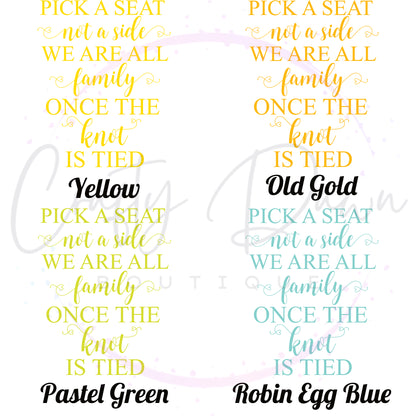 PICK A SEAT
not a side
WE ARE ALL
family
ONCE THE
knot
IS TIED
Yellow
PICK A SEAT
not a side
WE ARE ALL
family
ONCE THE
knot
IS TIED
Old Gold
PICK A SEAT
not a side
WE ARE ALL
family
ONCE THE
knot
IS TIED
Pastel Green
PICK A SEAT
not a side
WE ARE ALL
family
ONCE THE
knot
IS TIED
Robin Egg Blue
Crafty Dawn
BOUTIQUE